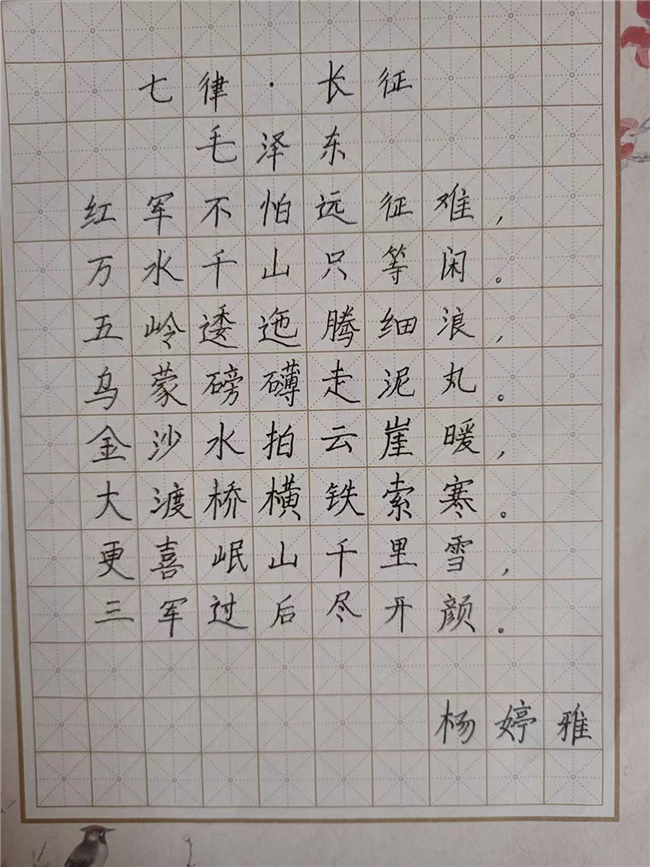 七律·长征
毛泽东
红军不怕远征难，
万水千山只等闲。
五岭逶迤腾细浪，
乌蒙磅礴走泥丸。
金沙水拍云崖暖，
大渡桥横铁索寒。
更喜岷山千里雪，
三军过后尽开颜。
杨婷雅